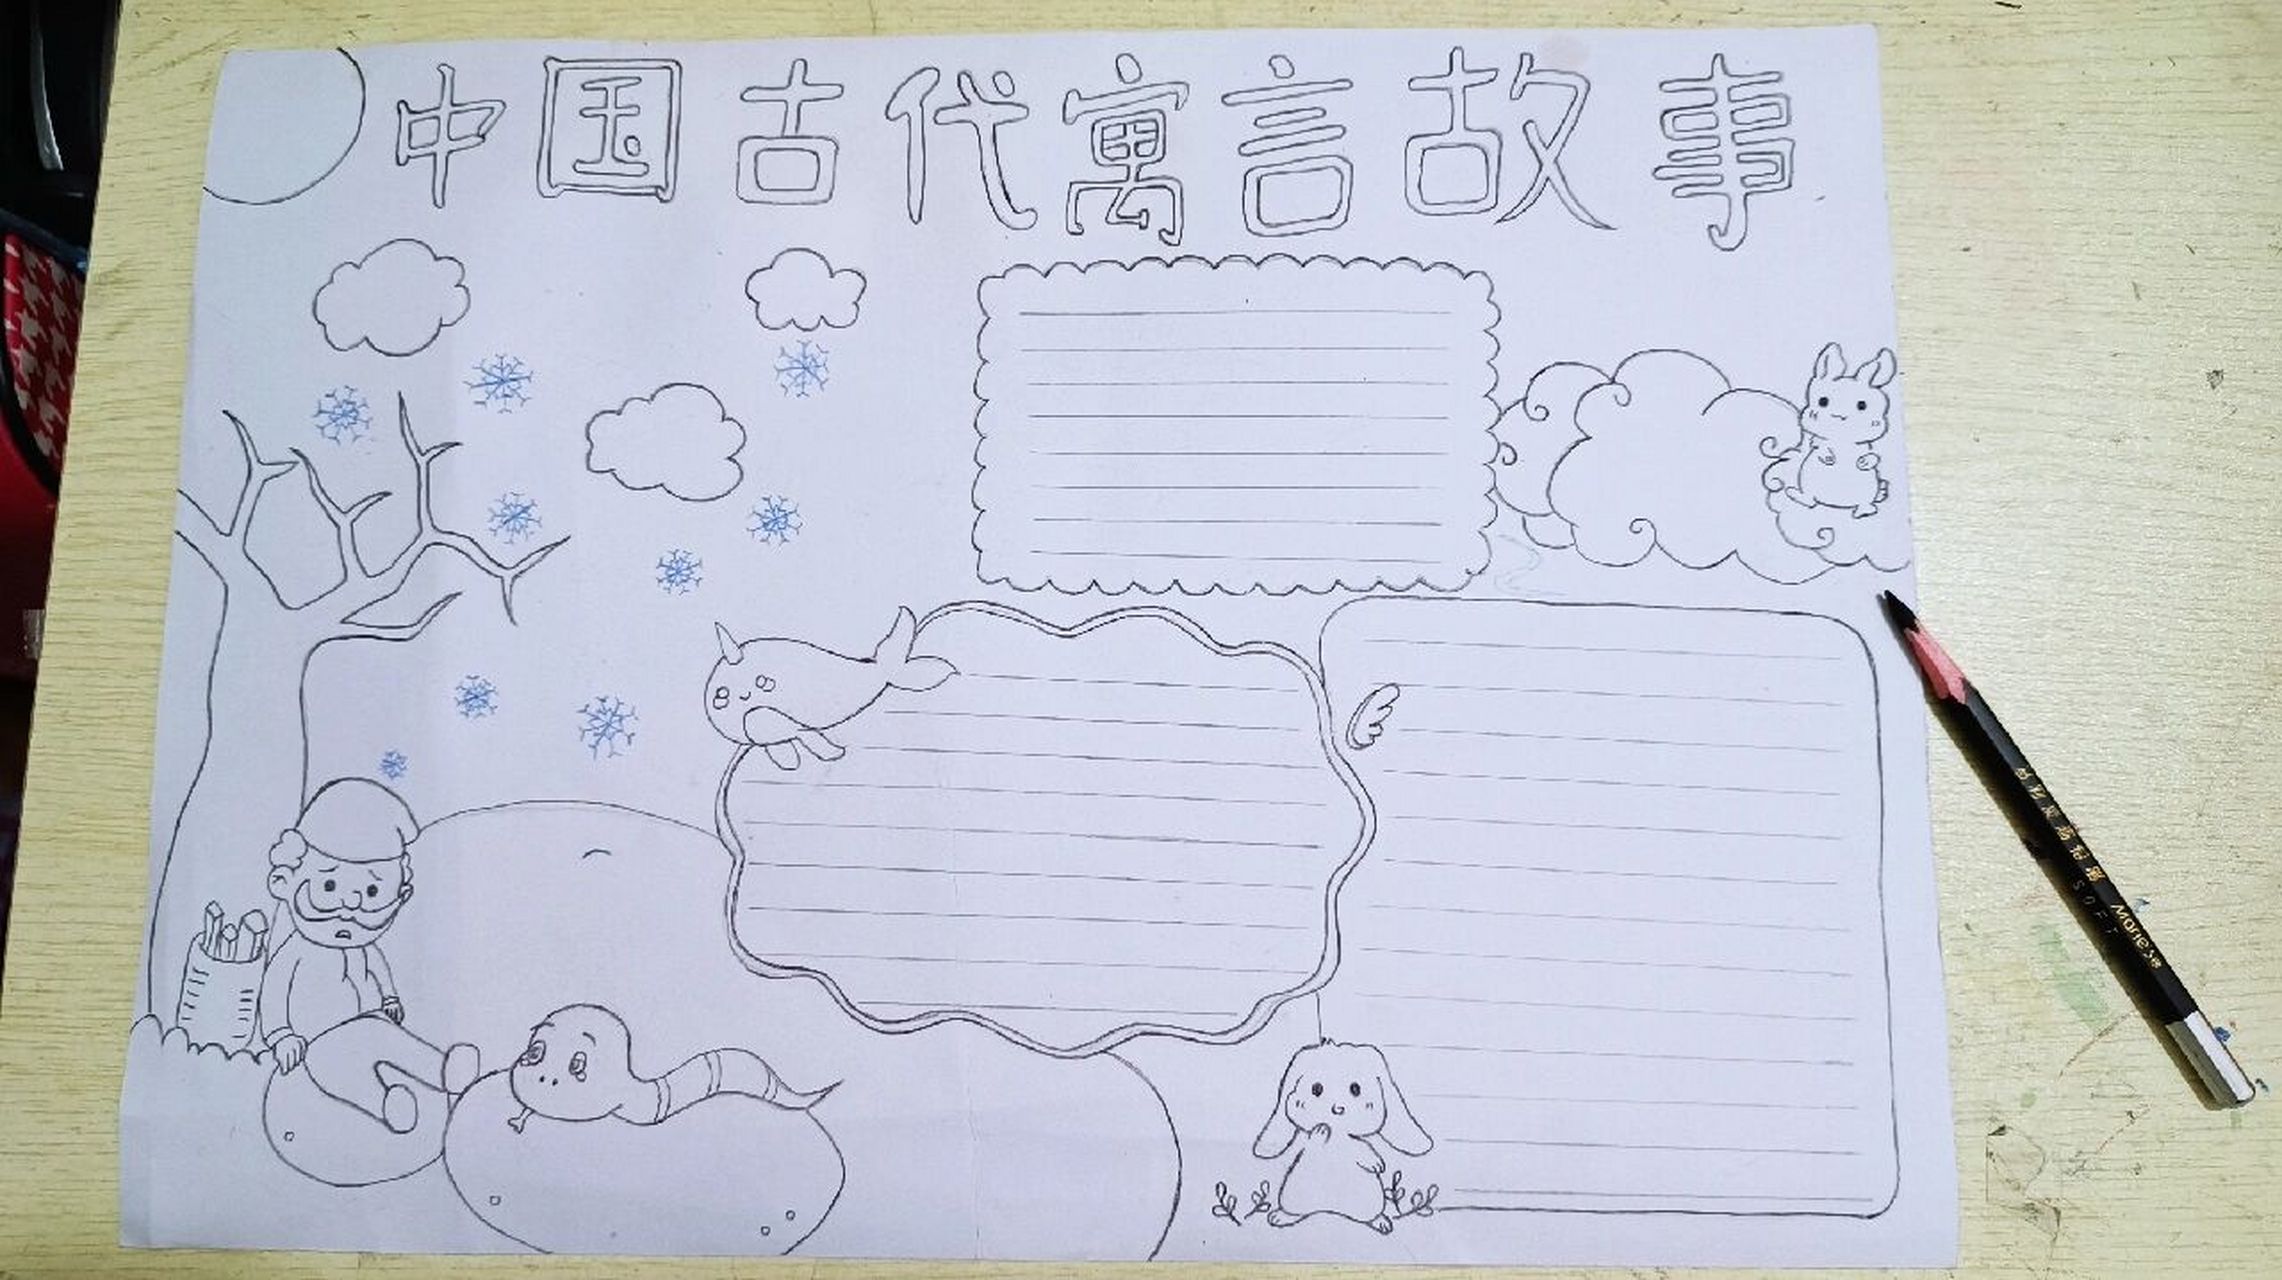 中国古代寓言故事
SOFT